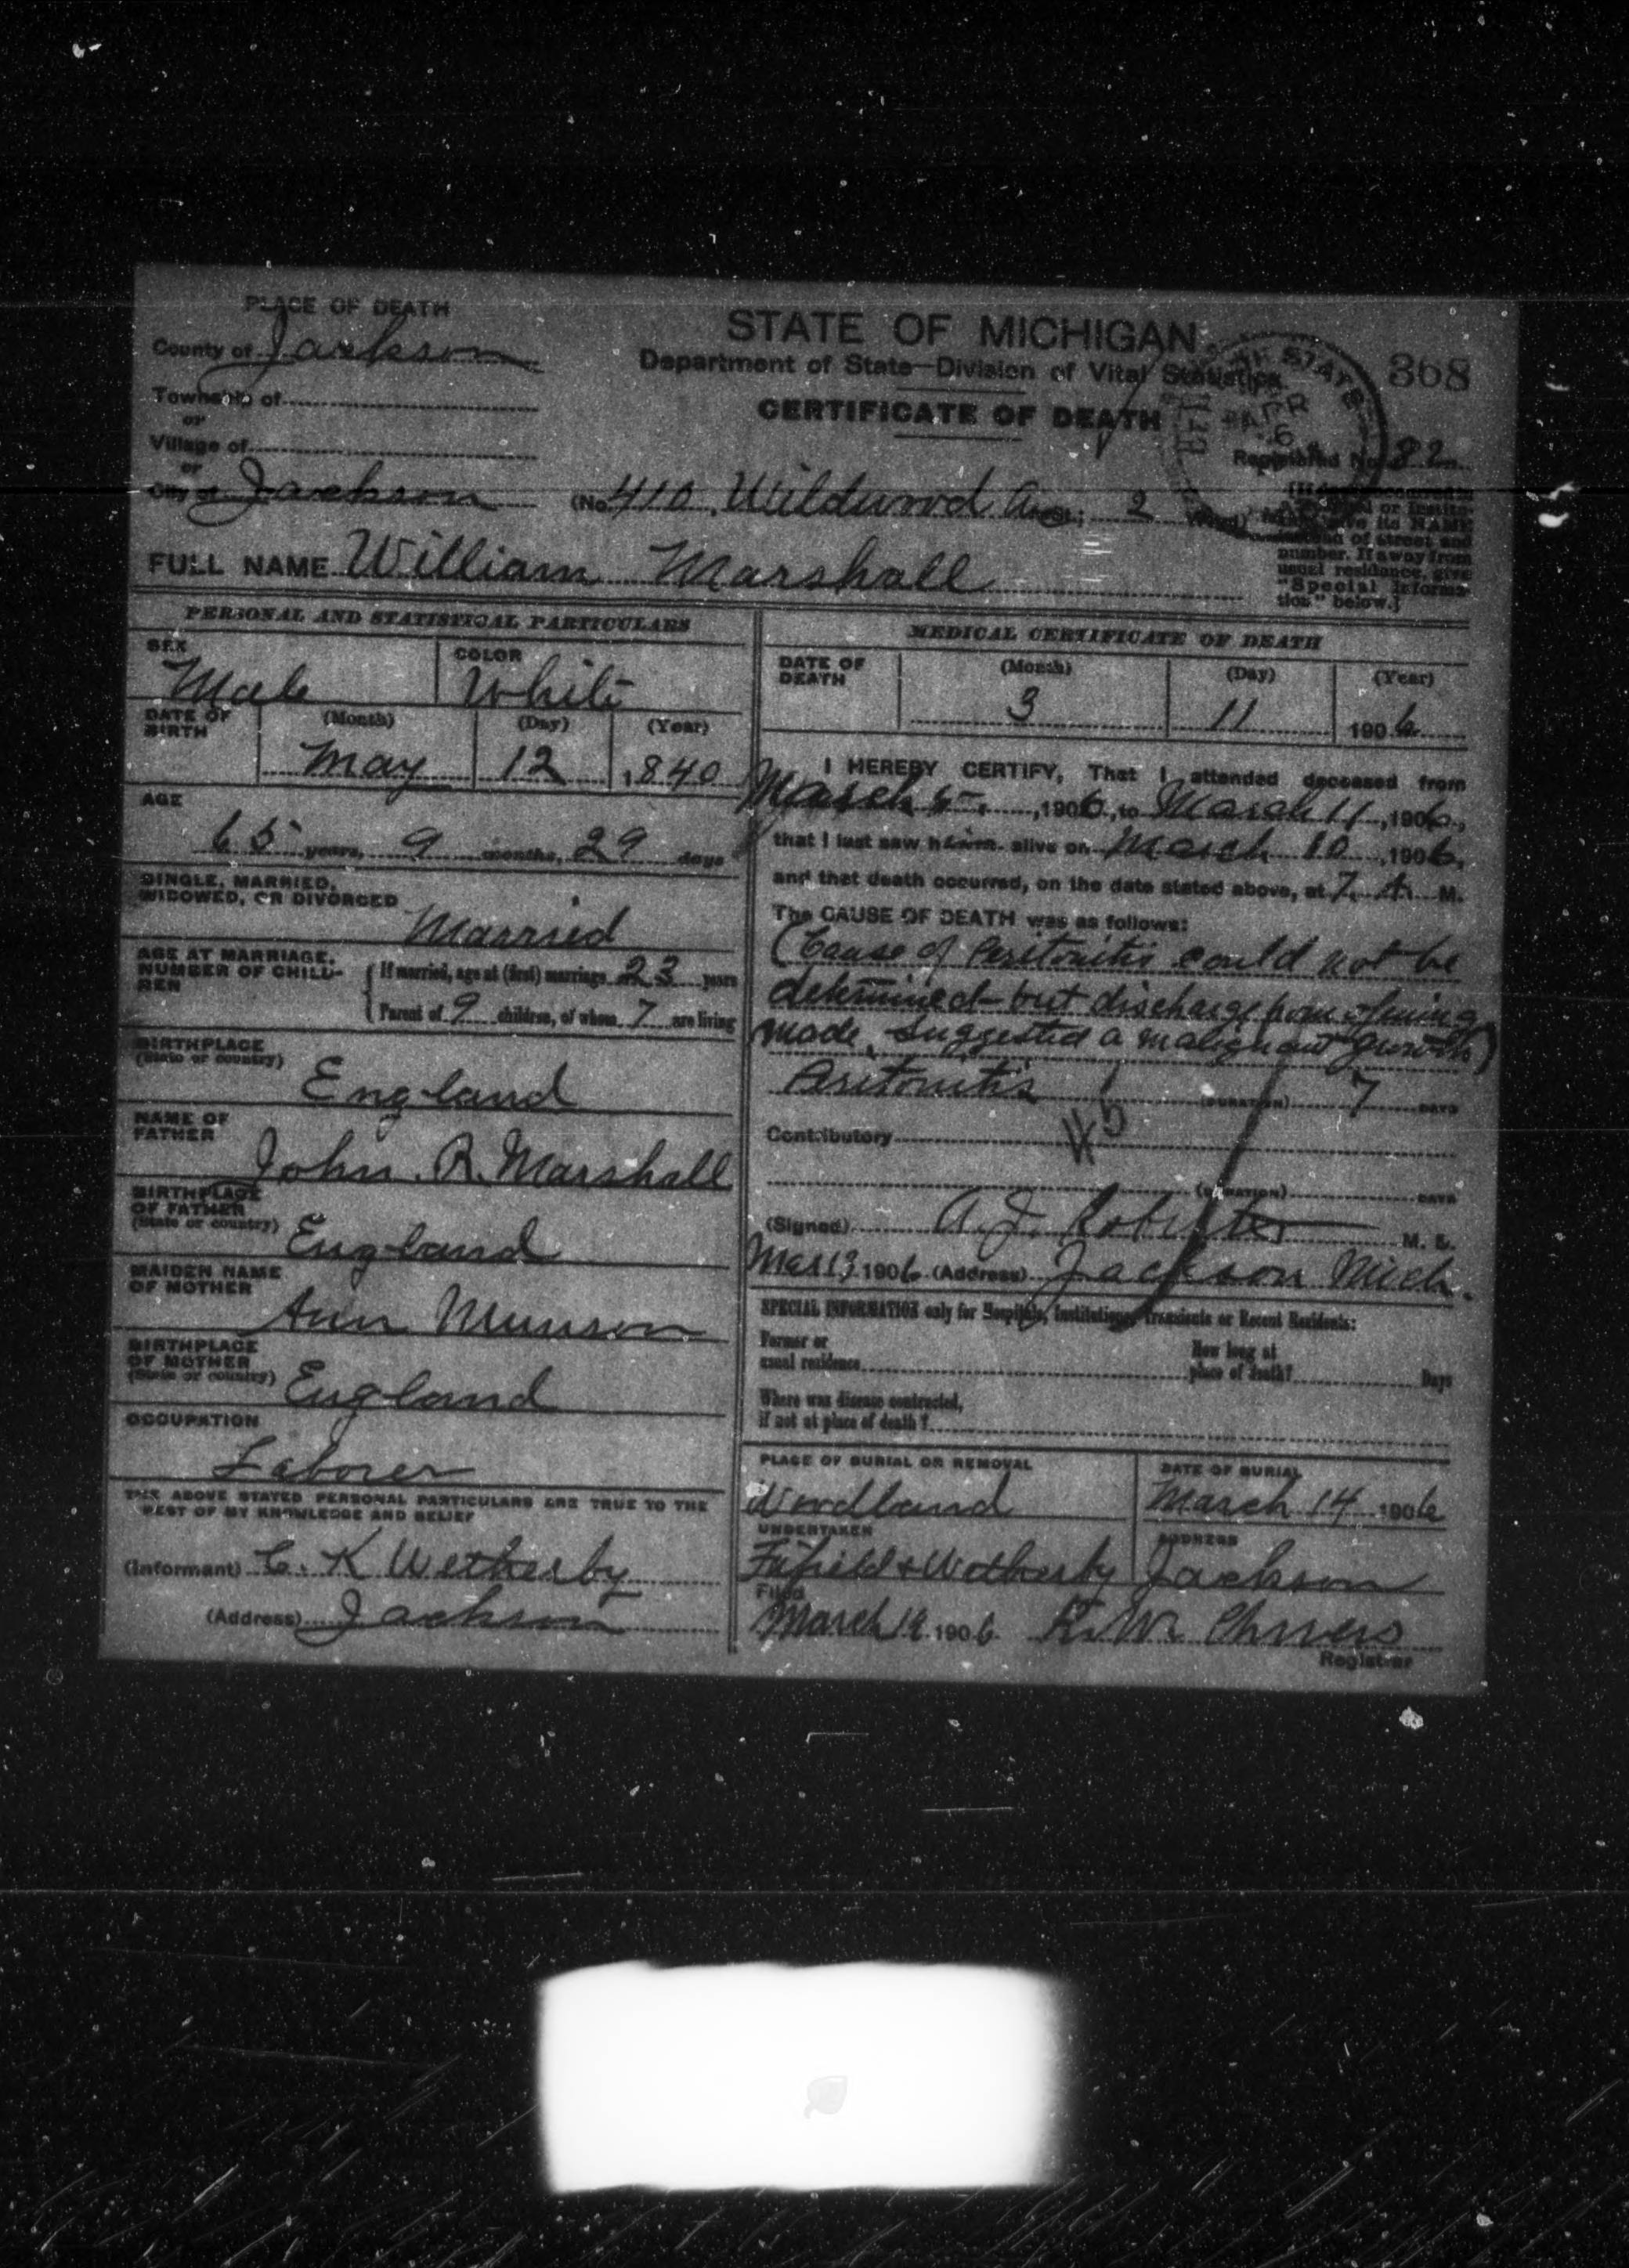 PLACE OF DEATH
County of Jackson
Township of
or
Village of
or
City of Jackson
STATE OF MICHIGAN
Department of State—Division of Vital Statistics
CERTIFICATE OF DEATH
368
APR 6
Registered No. 82
(No. 410 Wildwood Ave St.; 2 Ward)
[If death occurred in
a Hospital or Institu-
tion, give its NAME
instead of street and
number. If away from
usual residence, give
"Special Informa-
tion" below.]
FULL NAME William Marshall
PERSONAL AND STATISTICAL PARTICULARS
SEX
Male
COLOR
White
DATE OF
BIRTH
(Month) (Day) (Year)
May 12 1840
AGE
65 years, 9 months, 29 days
SINGLE, MARRIED,
WIDOWED, OR DIVORCED
Married
AGE AT MARRIAGE,
NUMBER OF CHILD-
REN
If married, age at (first) marriage 23 years
Parent of 9 children, of whom 7 are living
BIRTHPLACE
(State or country)
England
NAME OF
FATHER
John R. Marshall
BIRTHPLACE
OF FATHER
(State or country)
England
MAIDEN NAME
OF MOTHER
Ann Munson
BIRTHPLACE
OF MOTHER
(State or country)
England
OCCUPATION
Laborer
THE ABOVE STATED PERSONAL PARTICULARS ARE TRUE TO THE
BEST OF MY KNOWLEDGE AND BELIEF
(Informant) C. K Wetherby
(Address) Jackson
MEDICAL CERTIFICATE OF DEATH
DATE OF
DEATH
(Month) (Day) (Year)
3 11 1906
I HEREBY CERTIFY, That I attended deceased from
March 5, 1906, to March 11, 1906,
that I last saw him alive on March 10, 1906,
and that death occurred, on the date stated above, at 7 A M.
The CAUSE OF DEATH was as follows:
(Cause of Peritonitis could not be
determined - but discharge from opening
made, suggested a malignant growth)
Peritonitis (DURATION) 7 DAYS
45
Contributory
(DURATION) DAYS
(Signed) A. J. Roberts M. D.
Mar 13 1906 (Address) Jackson Mich.
SPECIAL INFORMATION only for Hospitals, Institutions, Transients or Recent Residents:
Former or
usual residence
How long at
place of death? Days
Where was disease contracted,
if not at place of death?
PLACE OF BURIAL OR REMOVAL
Woodland
DATE OF BURIAL
March 14 1906
UNDERTAKER
Fifield & Wetherby
ADDRESS
Jackson
Filed
March 14 1906
Registrar